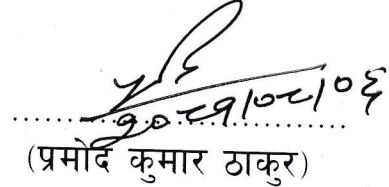 २०८१।०८।०६
(प्रमोद कुमार ठाकुर)